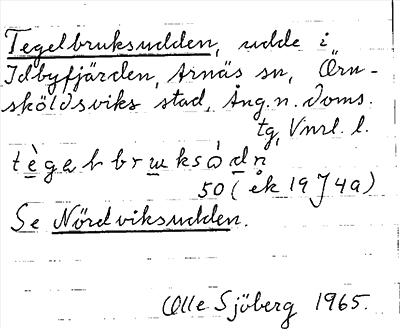 Tegelbruksudden, udde i
Idbyfjärden, Arnäs sn, Örn-
sköldsviks stad, Ång. n. doms.
tg, Vnrl. l.
tègəlbruksòdn
50 (ek 19 J 4a)
Se Nördviksudden.
Olle Sjöberg 1965.